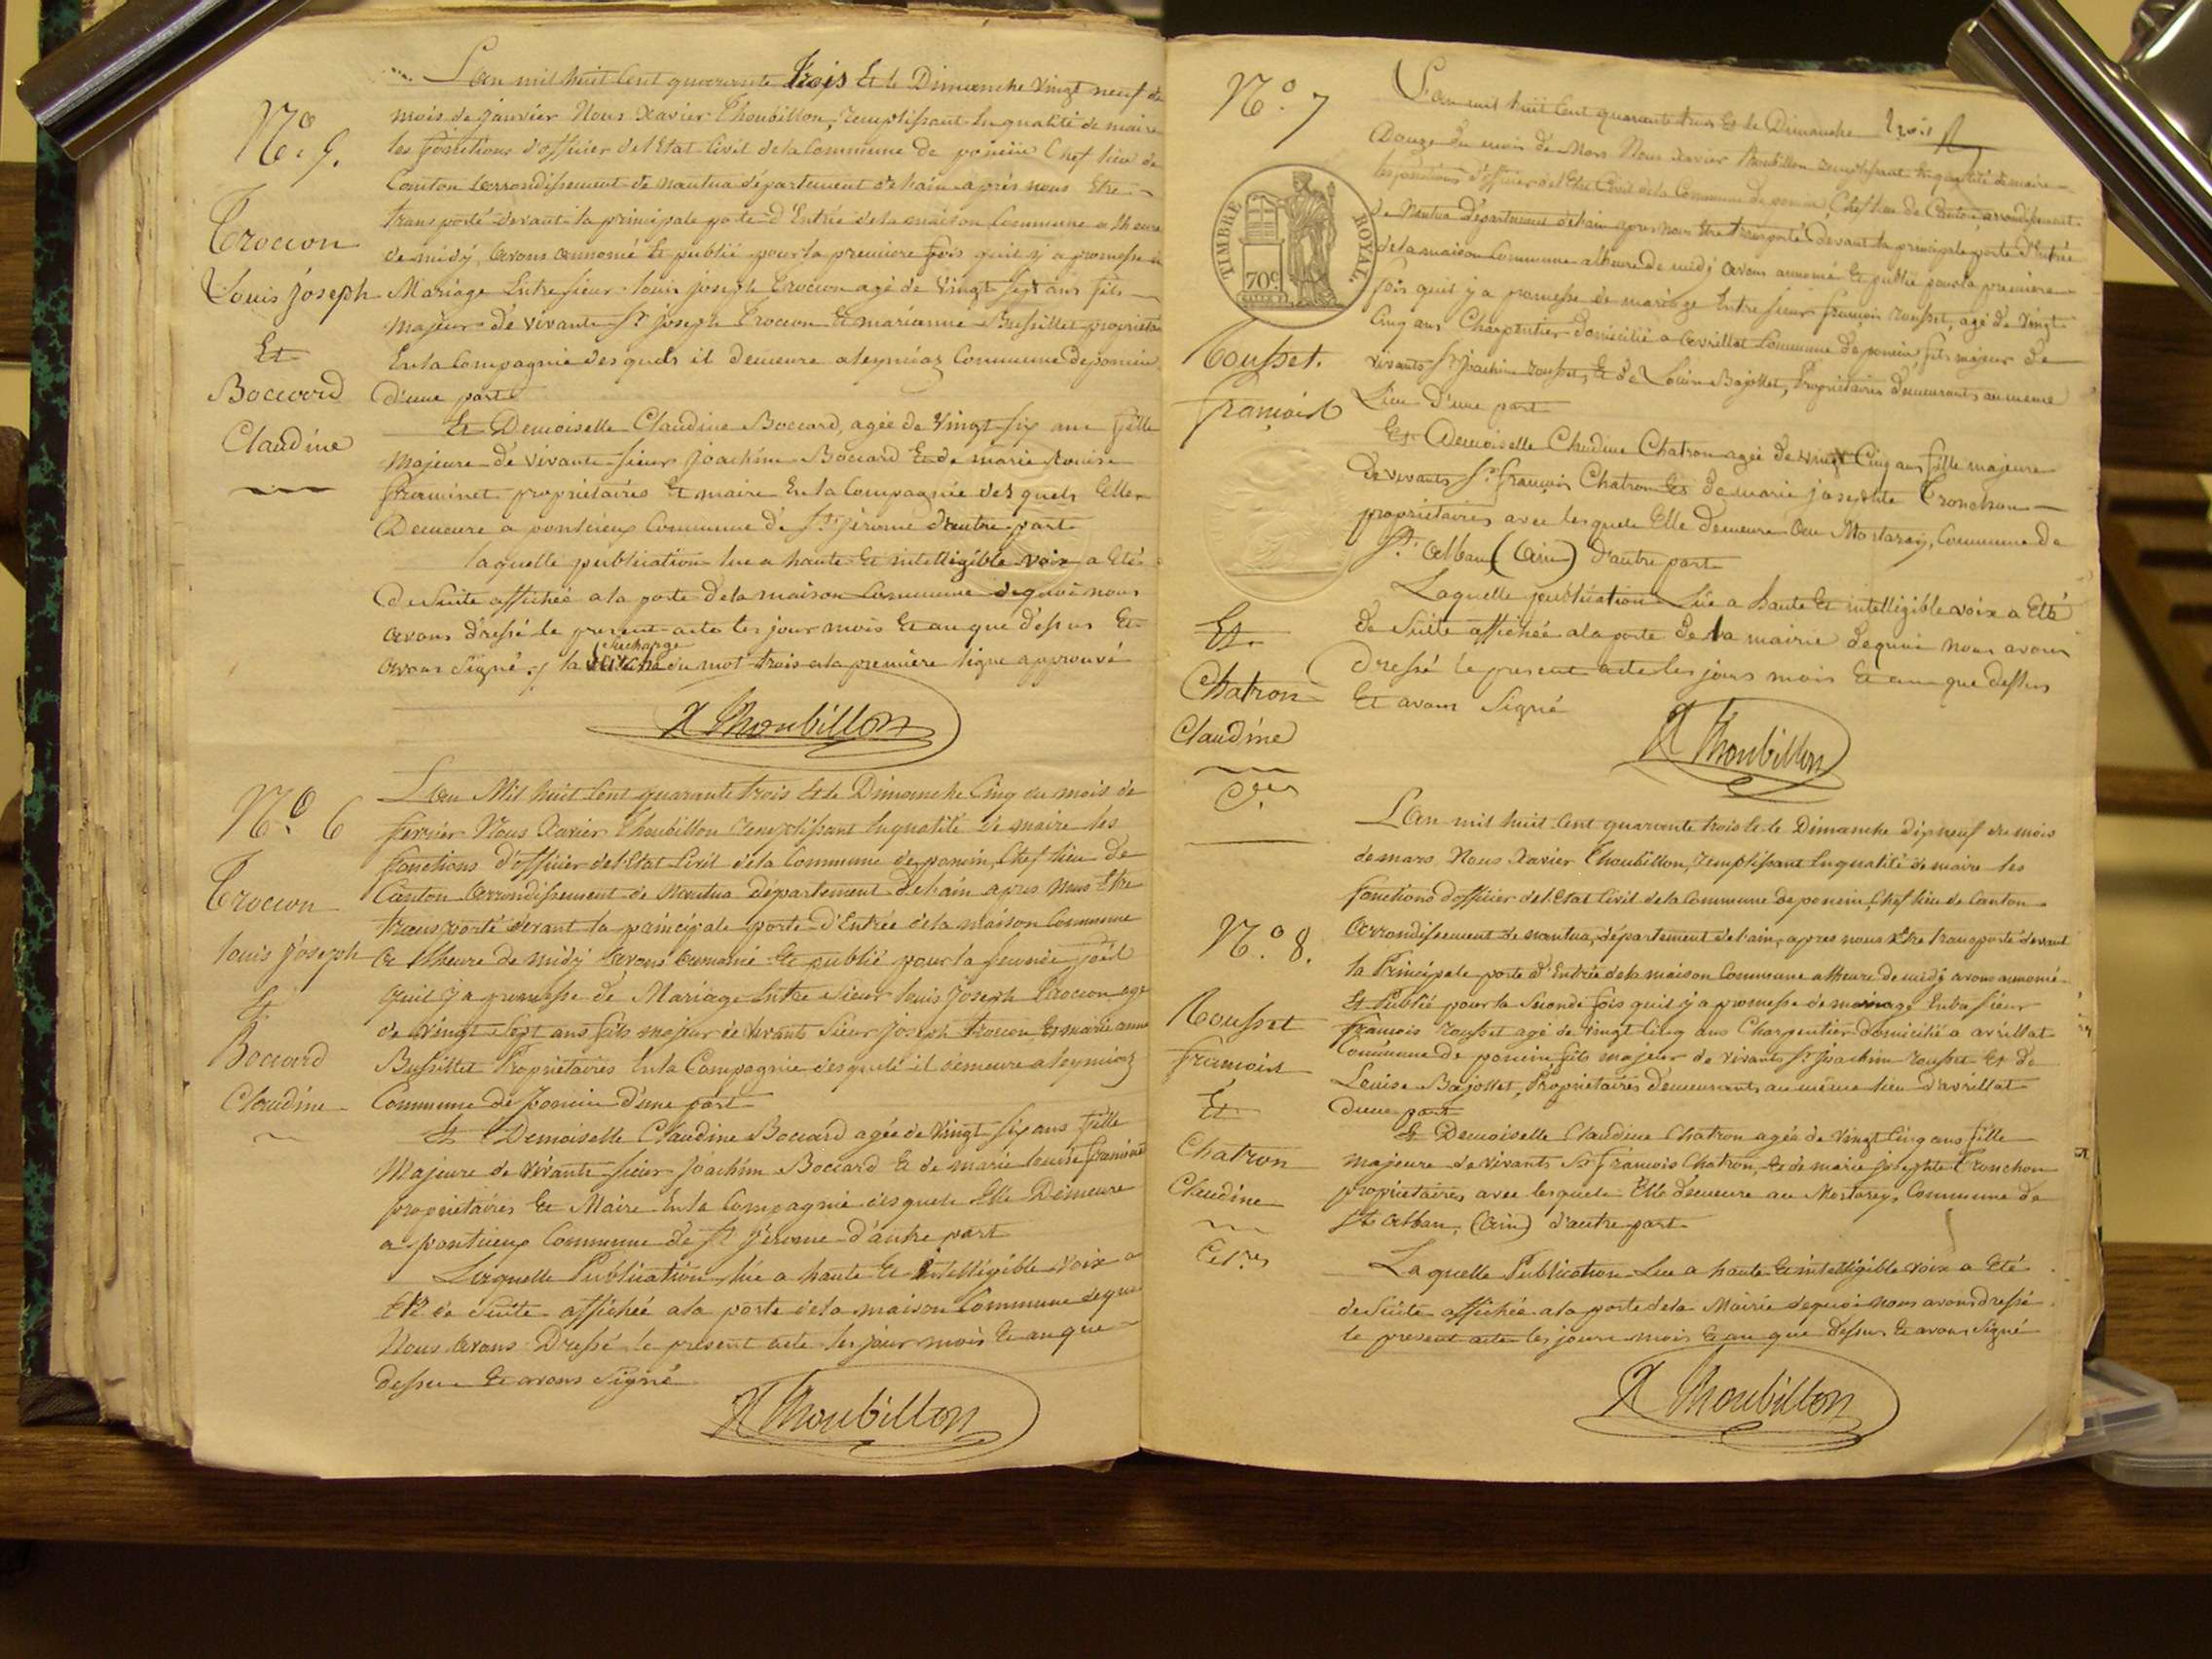 L'an mil huit Cent quarante trois Et le Dimanche Vingt neuf du
mois de janvier Nous Xavier Thoubillon, remplissant En qualité de maire
les fonctions d'officier de l'Etat Civil de la Commune de poncin Chef lieu de
Canton arrondissement de nantua département de l'ain après nous Etre
transporté devant la principale porte d'Entrée de la maison Commune a l'heure
de midy, avons annoncé Et publié pour la premiere fois quil y a promesse de
Mariage Entre sieur louis joseph Trocion agé de Vingt sept ans fils
majeur de vivants Sr joseph Trocion Et marianne Bussillet propriétaires
En la Compagnie des quels il demeure a leymiaz Commune de poncin
d'une part
Et Demoiselle Claudine Boccard, agée de Vingt six ans fille
Majeure de vivants sieur joachim Boccard Et de marie louise
framinet propriétaires Et maire En la Compagnie des quels Elle
Demeure a pontieux Commune de St jérome d'autre part
laquelle publication lue a haute Et intelligible voix a Eté
De Suite affichée a la porte de la maison Commune de quoi nous
avons dressé le present acte les jour mois Et an que dessus Et
avons Signé ./. la surcharge du mot trois a la première ligne approuvé
X Thoubillon
No. 5.
Trocion
Louis joseph
Et
Boccard
Claudine
L'an Mil huit Cent quarante trois Et le Dimanche Cinq du mois de
fevrier Nous Xavier Thoubillon remplissant En qualité de maire les
fonctions d'officier de l'Etat Civil de la Commune de poncin, Chef lieu de
Canton arrondissement de Nantua département de l'ain apres Nous Etre
transporté devant la principale porte d'Entrée de la maison Commune
a l'heure de midy avons annoncé Et publié pour la seconde fois
quil y a promesse de Mariage Entre Sieur louis Joseph Trocion agé
de vingt sept ans fils majeur de vivants Sieur joseph trocion, Et marie anne
Bussillet Propriétaires En la Compagnie des quels il demeure a leymiaz
Commune de poncin d'une part
Et Demoiselle Claudine Boccard agée de Vingt six ans fille
Majeure de vivants sieur joachim Boccard Et de marie louise framinet
propriétaires Et Maire En la Compagnie des quels Elle Demeure
a pontieux Commune de St jérome d'autre part
Laquelle Publication lue a haute Et intelligible voix a
Eté de Suite affichée a la porte de la maison Commune de quoi
Nous avons Dressé le présent acte les jour mois Et an que
dessus Et avons Signé
X Thoubillon
No. 6
Trocion
louis joseph
Et
Boccard
Claudine
L'an mil huit Cent quarante trois Et le Dimanche
Douze du mois de Mars Nous Xavier Thoubillon remplissant En qualité de maire
les fonctions d'officier de l'Etat Civil de la Commune de poncin, Chef lieu de Canton, arrondissement
de Nantua Département de l'ain apres nous Etre transporté devant la principale porte d'Entrée
de la maison Commune a l'heure de midy avons annoncé Et publié pour la premiere
fois quil y a promesse de mariage Entre sieur françois rousset, agé de Vingt
Cinq ans Charpentier domicilié a avrillat Commune de poncin, fils majeur de
vivants Sr Joachim rousset, Et de Louise Bajollet, Propriétaires demeurants au meme
Lieu D'une part
Et Demoiselle Claudine Chatron agée de vingt Cinq ans fille majeure
de vivants Sr françois Chatron Et de marie josephte Tronchon
propriétaires avec lesquels Elle demeure au Mortarey, Commune de
St alban (ain) d'autre part
Laquelle publication Lue a haute Et intelligible voix a Eté
de Suite affichée a la porte de la mairie de quoi nous avons
Dressé le present acte les jours mois Et an que dessus
Et avons Signé
X Thoubillon
No. 7
TIMBRE ROYAL.
70c
rousset.
françois
Et
Chatron
Claudine
L'an mil huit Cent quarante trois Et le Dimanche dix neuf du mois
de mars Nous Xavier Thoubillon, remplissant En qualité de maire les
fonctions d'officier de l'Etat Civil de la Commune de poncin, Chef lieu de Canton
arrondissement de nantua, département de l'ain, apres nous Etre transporté devant
la Principale porte d'Entrée de la maison Commune a l'heure de midy avons annoncé
Et Publié pour la Seconde fois quil y a promesse de mariage Entre sieur
françois rousset agé de vingt Cinq ans Charpentier domicilié a avrillat
Commune de poncin fils majeur de vivants Sr Joachim rousset Et de
Louise Bajollet, Propriétaires demeurants au même lieu d'avrillat
d'une part
Et Demoiselle Claudine Chatron agée de vingt Cinq ans fille
majeure de vivants Sr françois Chatron, Et de marie josephte Tronchon
propriétaires avec lesquels Elle demeure au Mortarey, Commune de
St alban, (ain) d'autre part
Laquelle Publication Lue a haute Et intelligible voix a Eté
de Suite affichée a la porte de la Mairie de quoi nous avons dressé
le present acte les jours mois Et an que dessus Et avons Signé
X Thoubillon
No. 8.
Rousset
françois
Et
Chatron
Claudine